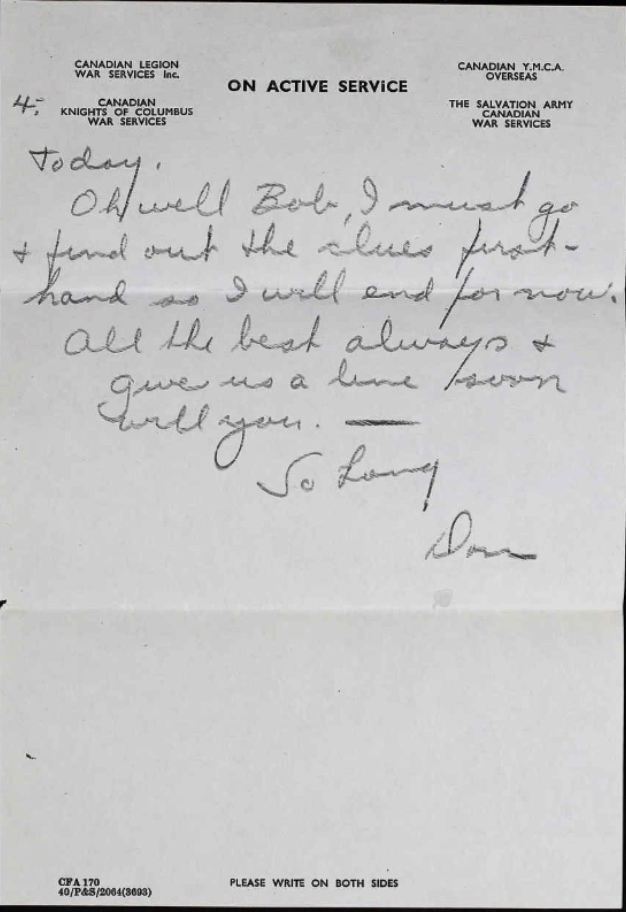 CANADIAN LEGION
WAR SERVICES Inc.
CANADIAN
KNIGHTS OF COLUMBUS
WAR SERVICES
ON ACTIVE SERVICE
CANADIAN Y.M.C.A.
OVERSEAS
THE SALVATION ARMY
CANADIAN
WAR SERVICES
4;
Today.
Oh well Bob, I must go
+ find out the clues first-
hand so I will end for now.
All the best always +
give us a line soon
will you. —
So Long
Don
CFA 170
40/P&S/2064(3693)
PLEASE WRITE ON BOTH SIDES